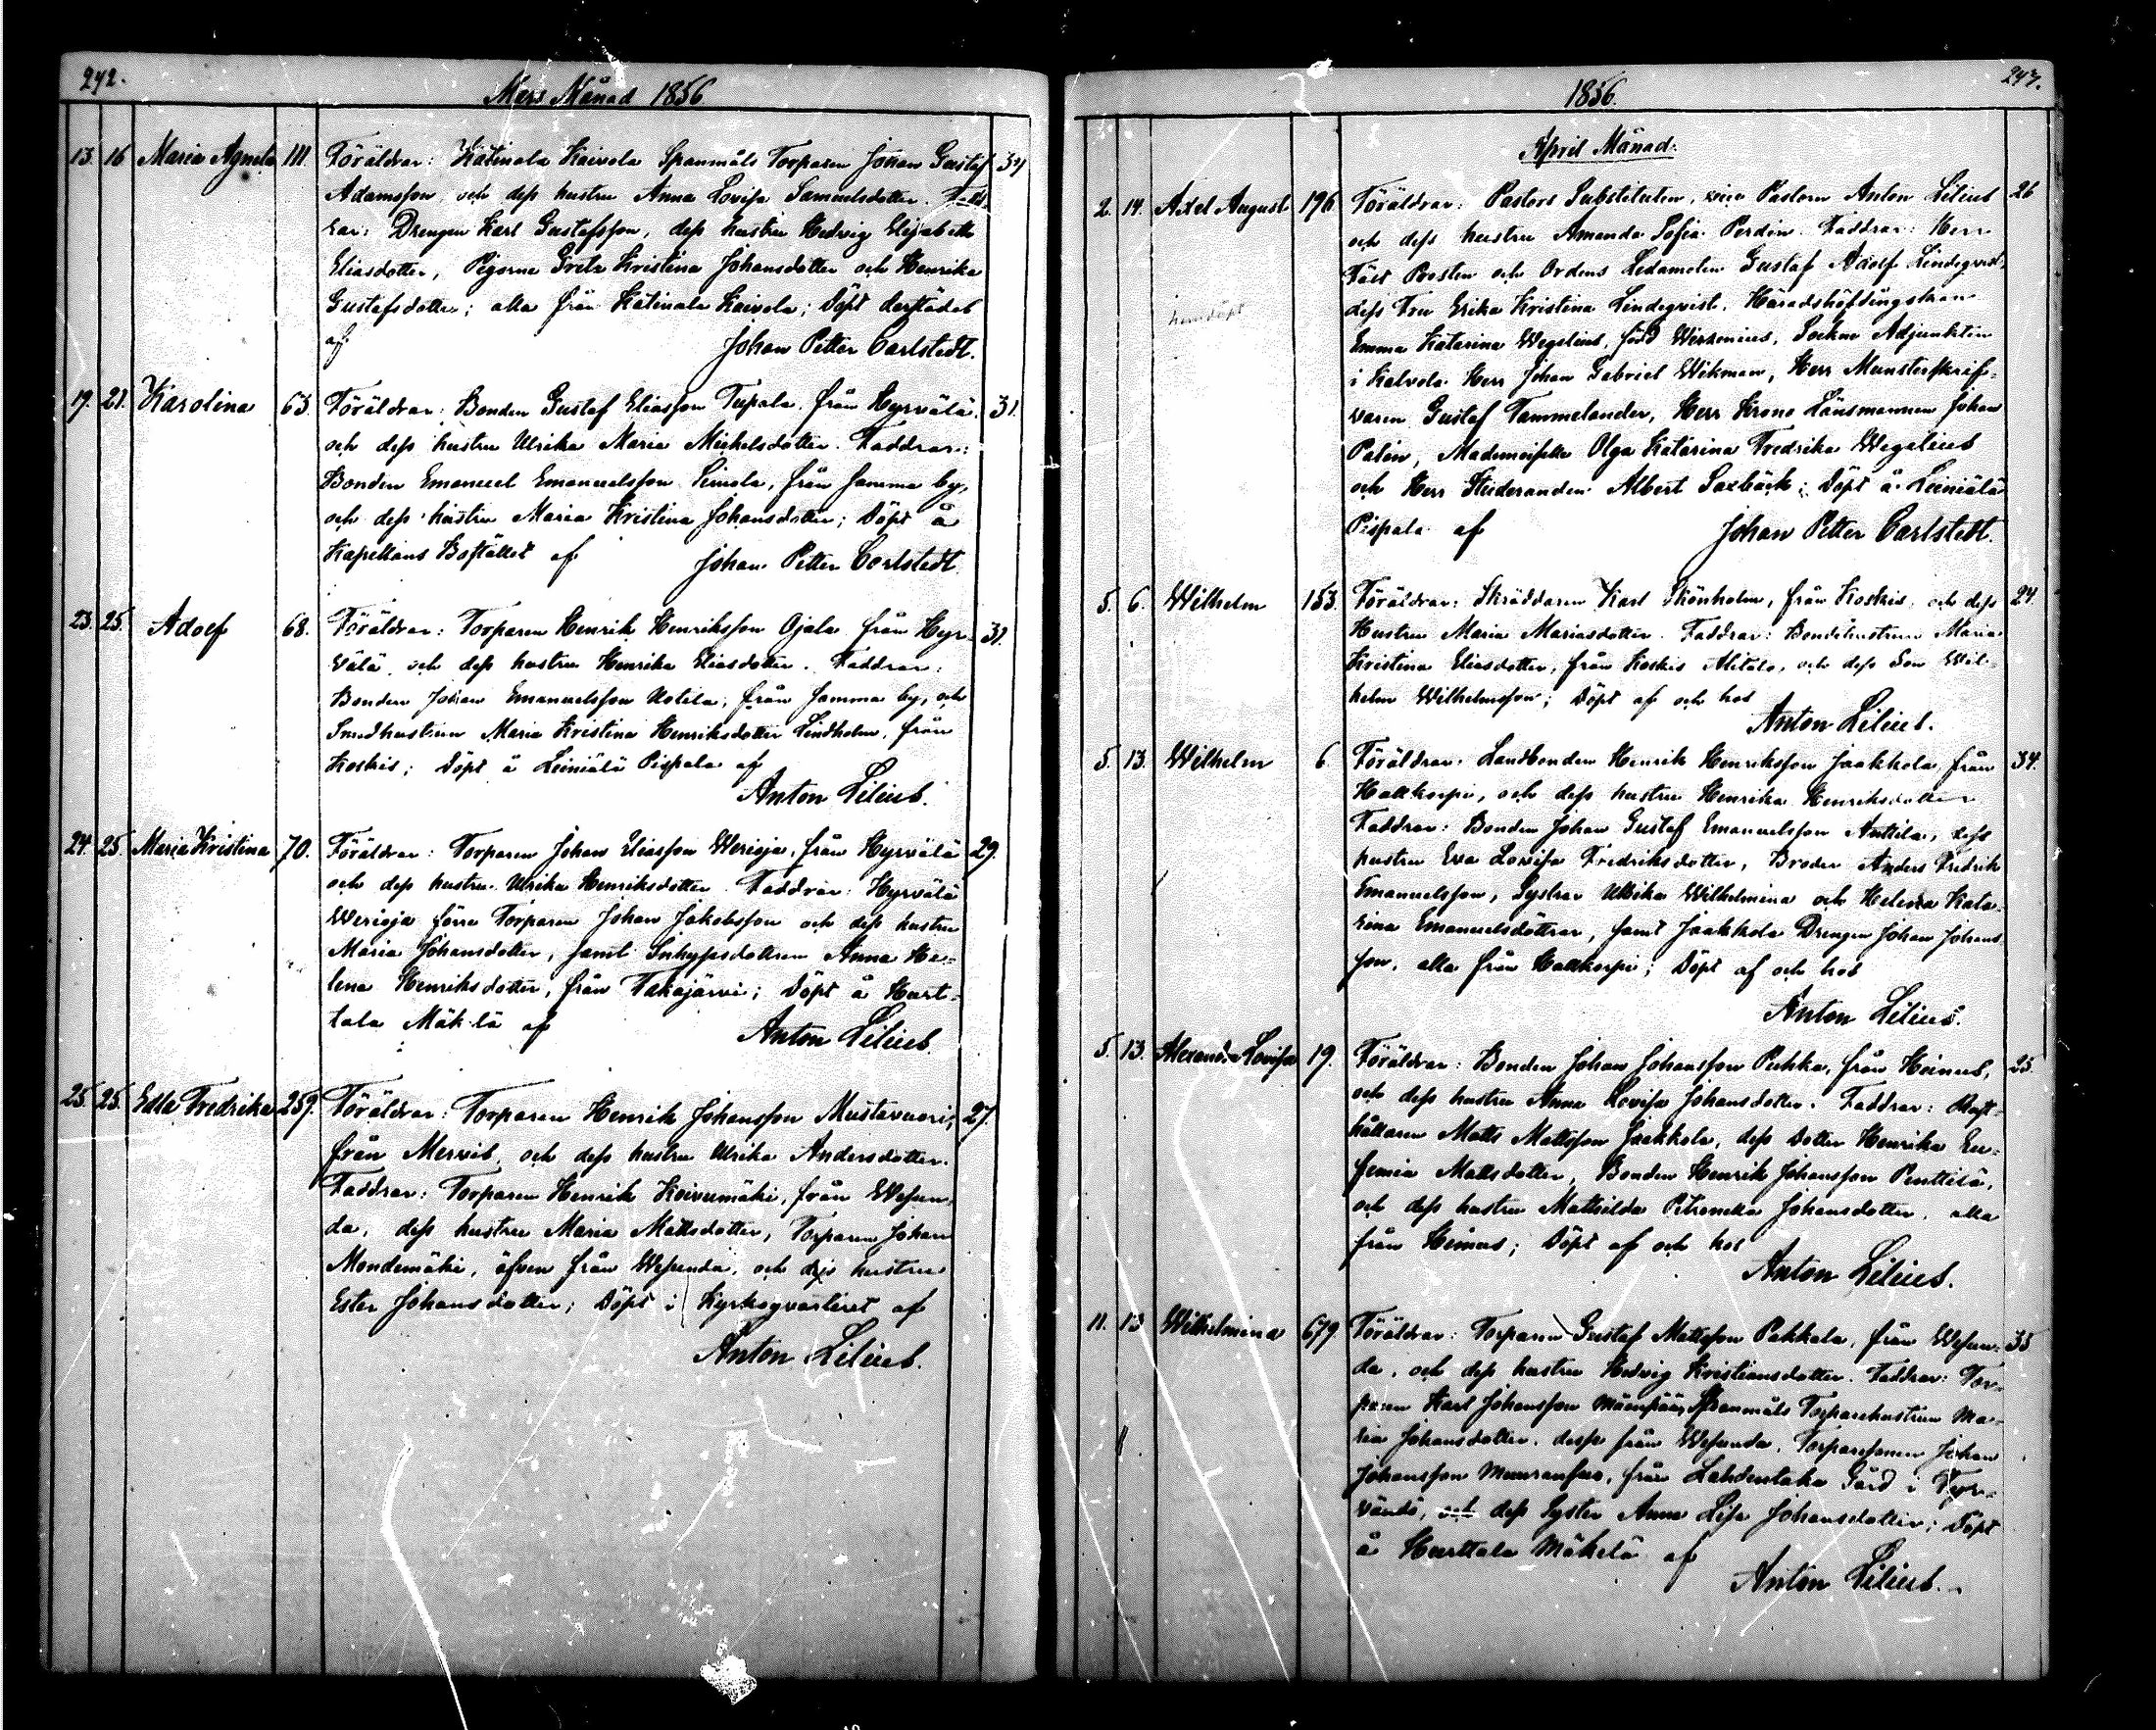 242.
Mars Månad 1856
13. 16 Maria Agneta 111. Föräldrar: Kätinala Kaivola Spanmåls Torparen Johan Gustaf
Adamsson och dess hustru Anna Lovisa Samuelsdotter. Fadd-
rar: Drengen Karl Gustafsson, dess hustru Hedvig Elisabeth
Eliasdotter, Pigorne Greta Kristina Johansdotter och Henrika
Gustafsdotter; alla från Kätinala Kaivola; Döpt derstädes
af Johan Petter Carlstedt.
19. 21. Karolina 63. Föräldrar: Bonden Gustaf Eliasson Tupala från Hyrvälä, 31.
och dess hustru Ulrika Maria Michelsdotter. Faddrar:
Bonden Emanuel Emanuelsson Simola, från samma by,
och dess hustru Maria Kristina Johansdotter; Döpt å
Kapellans Bostället af Johan Petter Carlstedt.
23. 25. Adolf 68. Föräldrar: Torparen Henrik Henriksson Ojala från Hyr-
välä, och dess hustru Henrika Eliasdotter. Faddrar:
Bonden Johan Emanuelsson Uotila, från samma by, och
Smedhustrun Maria Kristina Henriksdotter Lindholm, från
Koskis; Döpt å Leiniälä Pispala af
Anton Lilius.
24. 25. Maria Kristina 70. Föräldrar: Torparen Johan Eliasson Werioja, från Hyrvälä 29.
och dess hustru Ulrika Henriksdotter. Faddrar: Hyrvälä
Werioja förre Torparen Johan Jakobsson och dess hustru
Maria Johansdotter, samt Inhysesdottren Anna He-
lena Henriksdotter, från Takajärvi; Döpt å Hurt-
tala Mäkilä af Anton Lilius.
25. 25. Edla Fredrika 259. Föräldrar: Torparen Henrik Johansson Mustavuori, 27.
från Mervis, och dess hustru Ulrika Andersdotter.
Faddrar: Torparen Henrik Koivumäki, från Wesun-
da, dess hustru Maria Mattsdotter, Torparen Johan
Mondemäki, äfven från Wesunda, och dess hustru
Ester Johansdotter; Döpt i Kyrkogvarteret af
Anton Lilius.
243.
1856.
April Månad.
2. 14. Axel August 196 Föräldrar: Pastors Substituten, vice Pastorn Anton Lilius 26
och dess hustru Amanda Sofia Perdén. Faddrar: Herr
Fält Prosten och Ordens Ledamoten Gustaf Adolf Lindeqvist,
dess Fru Erika Kristina Lindeqvist, Häradshöfdingskan
hemdöpt
Emma Katarina Wegelius, född Wirzenius, Sockne Adjunkten
i Kalvola Herr Johan Gabriel Wikman, Herr Mönsterskrif-
varen Gustaf Tammelander, Herr Krono Länsmannen Johan
Palin, Mademoiselle Olga Katarina Fredrika Wegelius
och Herr Studeranden Albert Saxbäck; Döpt å Leiniälä
Pispala af Johan Petter Carlstedt.
5. 6. Wilhelm 153. Föräldrar: Skräddaren Karl Skönholm, från Koskis, och dess 24.
Hustru Maria Mariasdotter. Faddrar: Bondehustrun Maria
Kristina Eliasdotter, från Koskis Alitalo, och dess Son Wil-
helm Wilhelmsson; Döpt af och hos
Anton Lilius.
5. 13. Wilhelm 6. Föräldrar: Landbonden Henrik Henriksson Jaakkola, från 34.
Hattkorpi, och dess hustru Henrika Henriksdotter
Faddrar: Bonden Johan Gustaf Emanuelsson Anttila, dess
hustru Eva Lovisa Fredriksdotter, Broder Anders Fredrik
Emanuelsson, Systrar Ullrika Wilhelmina och Helena Kata-
rina Emanuelsdöttrar, samt Jaakkola Drengen Johan Johans-
son, alla från Hattkorpi; Döpt af och hos
Anton Lilius.
5. 13. Alexandra Lovisa 19. Föräldrar: Bonden Johan Johansson Puhka, från Heinus, 25.
och dess hustru Anna Lovisa Johansdotter. Faddrar: Rust-
hållaren Matts Mattsson Jaakkola, dess Dotter Henrika Eu-
femia Mattsdotter, Bonden Henrik Johansson Penttilä,
och dess hustru Mathilda Petronella Johansdotter, alla
från Heinus; Döpt af och hos
Anton Lilius.
11. 13 Wilhelmina 679 Föräldrar: Torparen Gustaf Mattsson Pakkala, från Wesun- 35
da, och dess hustru Hedvig Kristiansdotter. Faddrar: Tor-
paren Karl Johansson Mäenpää, Spanmåls Torparehustrun Ma-
ria Johansdotter, desse från Wesunda, Torparesonen Johan
Johansson, från Lahdentaka Gård i Tyr-
vändö, och dess Syster Anna Lisa Johansdotter; Döpt
å Hurttala Mäkelä af
Anton Lilius.